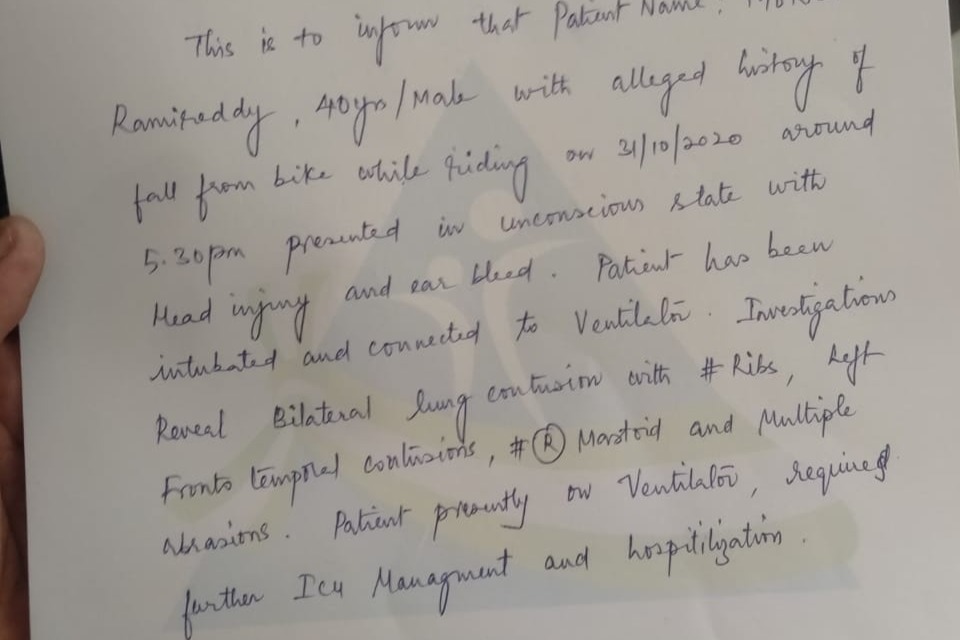 This is to inform that Patient Name :
Ramireddy, 40yrs/Male with alleged history of
fall from bike while riding on 31/10/2020 around
5.30pm presented in unconscious state with
Head injury and ear bleed. Patient has been
intubated and connected to Ventilator. Investigations
Reveal Bilateral lung contusion with # Ribs, Left
Fronto temporal contusions, # Ⓡ Mastoid and Multiple
abrasions. Patient presently on Ventilator, required
further Icu Managment and hospitilization.